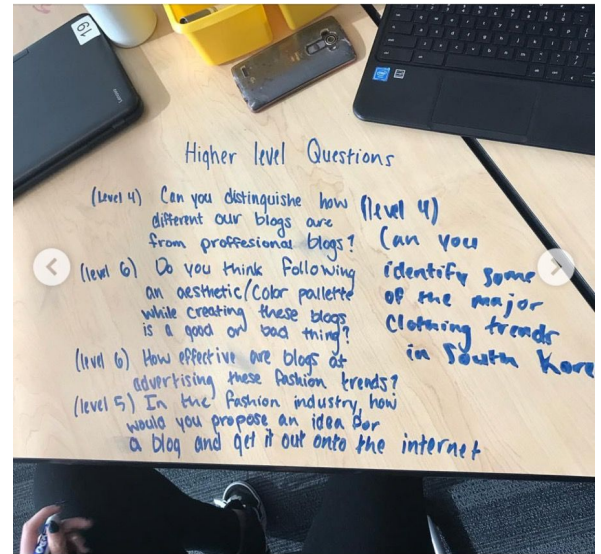 19
Lenovo
Higher level Questions
(Level 4) Can you distinguishe how
different our blogs are
from proffesional blogs?
(level 6) Do you think Following
an aesthetic/color pallette
while creating these blogs
is a good or bad thing?
(level 6) How effective are blogs at
advertising these fashion trends?
(level 5) In the fashion industry, how
would you propose an idea for
a blog and get it out onto the internet
(level 4)
Can you
identify some
of the major
clothing trends
in South Kore